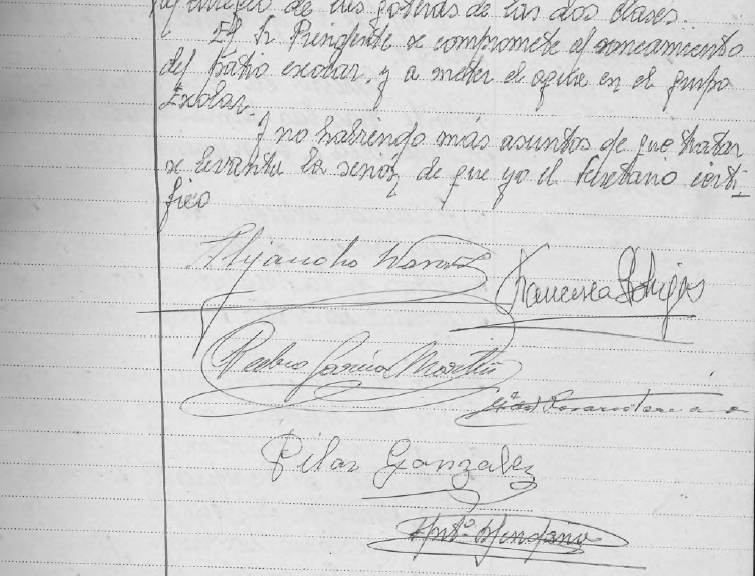 arreglo de las goteras de las dos clases.
El Sr Presidente se compromete al saneamiento
del Patio escolar, y a meter el agua en el grupo
Escolar.
Y no habiendo más asuntos de que tratar
se levanta la sesión de que yo el Secretario certi-
fico
Alejandro
Francisca
Pedro García Martín
Pilar Gonzalez
Antº